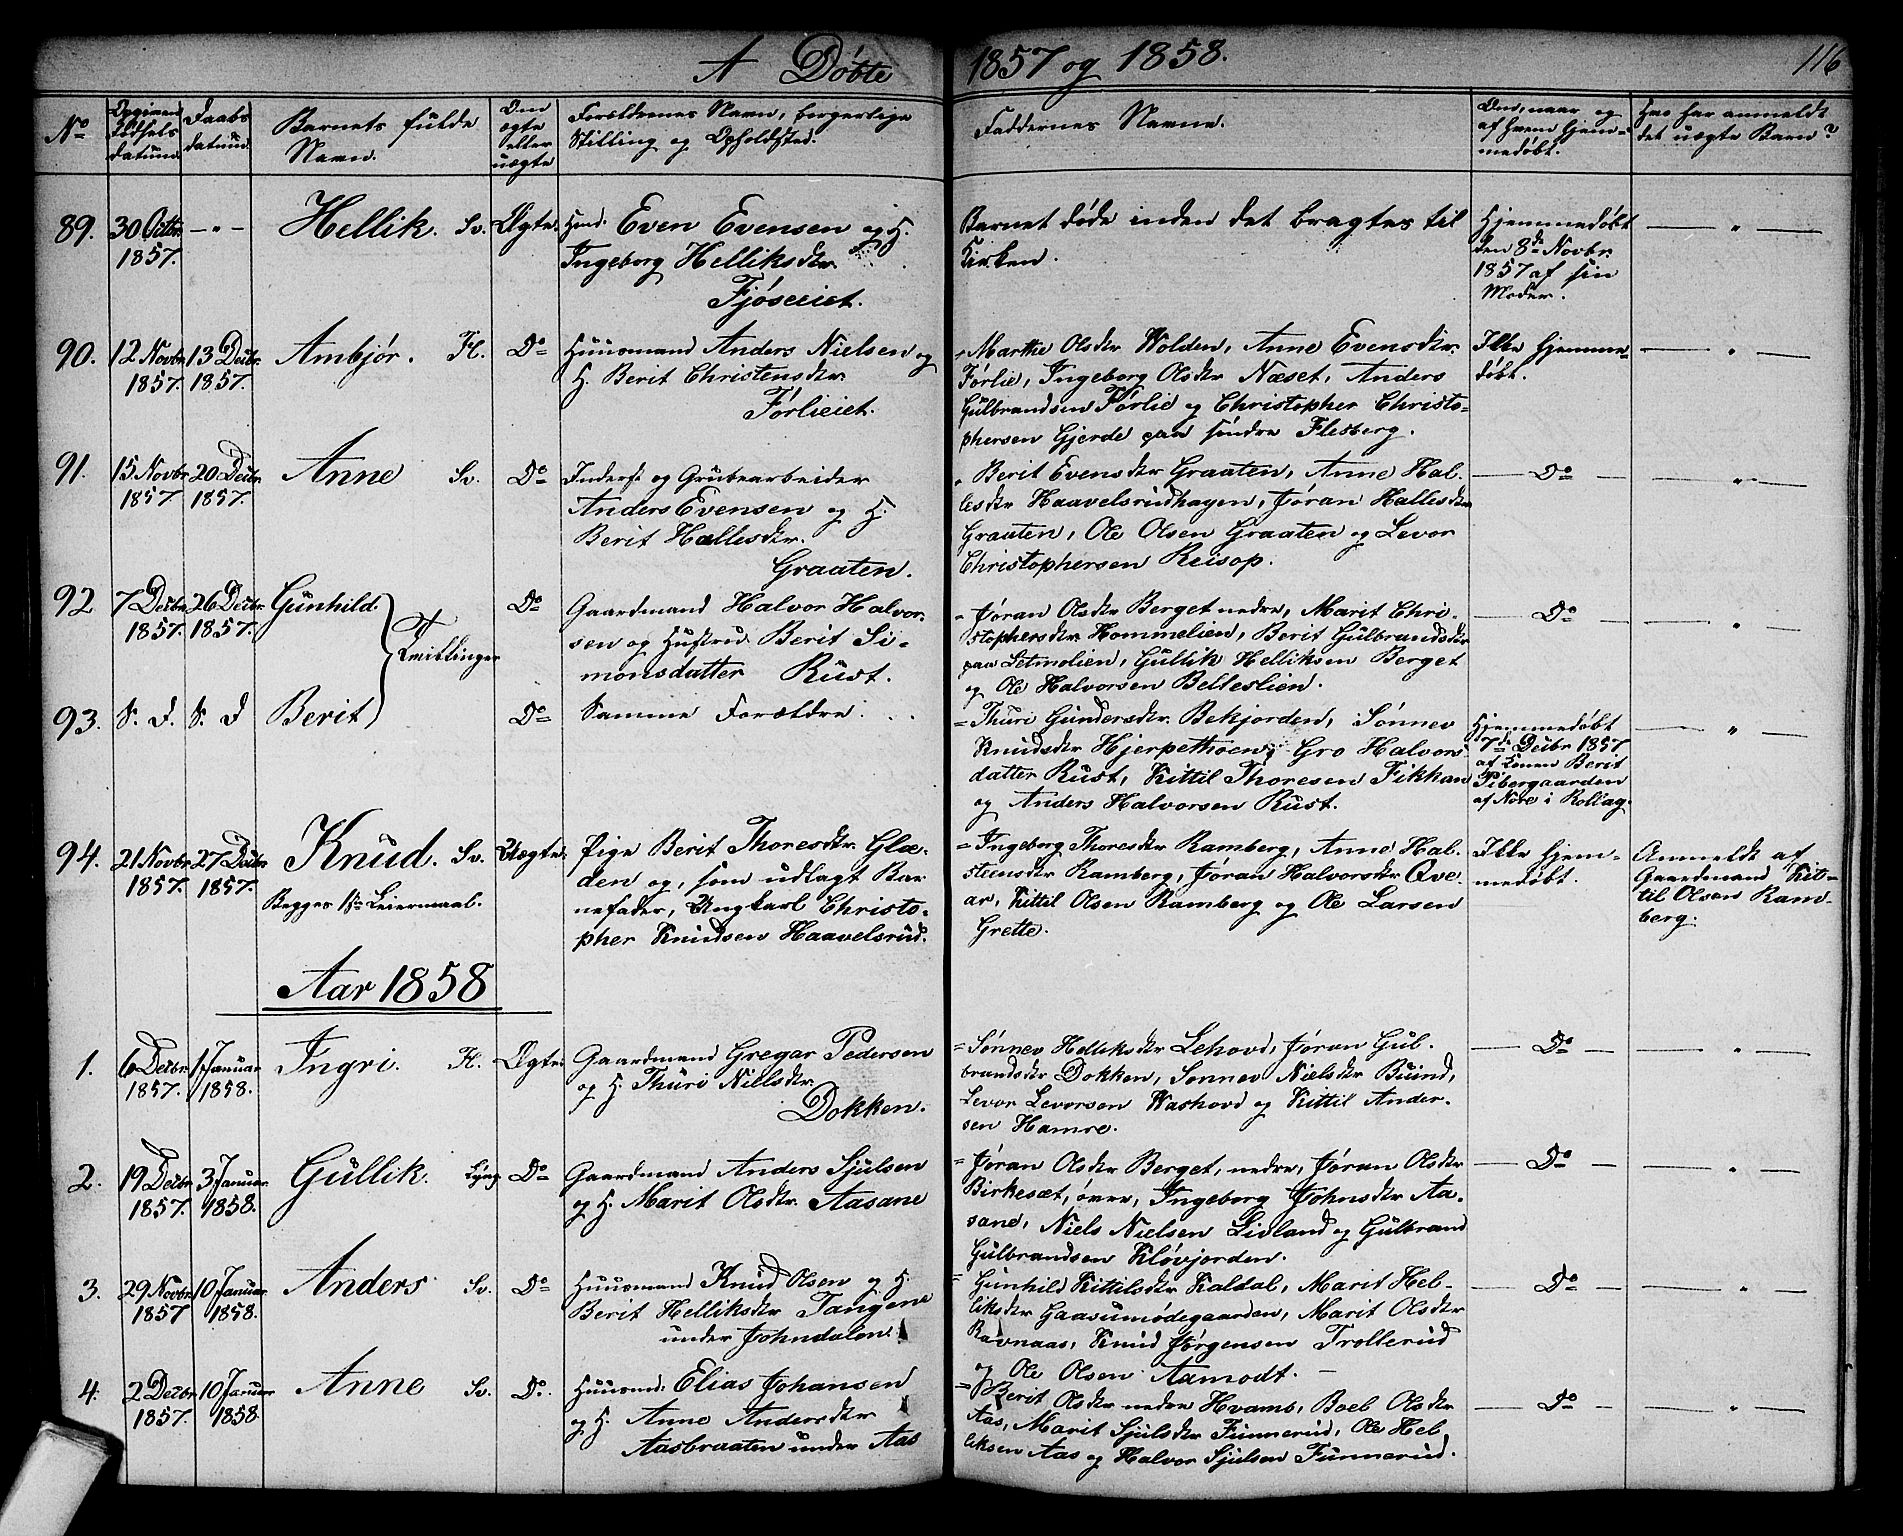 A Døbte
1857 og 1858.
116
No
Opgiven Fødsels datum.
Daabs datum.
Barnets fulde Navn.
Om ægte eller uægte
Forældrenes Navn, borgerlige Stilling og Opholdssted.
Faddernes Navne.
Om, naar og af hvem hjemmedøbt.
Hvo har anmeldt det uægte Barn?
89.
30 Octbr.
1857.
— " —
Hellik. Sv.
Ægte.
Huusmd. Even Evensen og H.
Ingeborg Helliksdtr.
Fjøseeiet.
Barnet døde inden det bragtes til
Kirken.
Hjemmedøbt
den 8de Novbr.
1857 af sin
Moder.
— " —
90.
12 Novbr.
1857.
13 Decbr.
1857.
Ambjør. Fl.
Do
Huusmand Anders Nielsen og
H. Berit Christensdtr.
Førlieiet.
= Marthe Olsdtr Wolden, Anne Evensdtr.
Førlie, Ingeborg Olsdtr Næset, Anders
Gulbrandsen Førlie og Christopher Christo=
phersen Gjerde paa søndre Flesberg.
Ikke hjemme=
døbt.
— " —
91.
15 Novbr
1857.
20 Decbr.
1857.
Anne Sv.
Do
Inderst og Grubearbeider
Anders Evensen og H.
Berit Hallesdtr.
Graaten.
= Berit Evensdtr Graaten, Anne Hal-
lesdtr Haavelsrudhagen, Jøran Hallesdtr
Graaten, Ole Olsen Graaten og Levor
Christophersen Reisop.
— Do —
— " —
92
7 Decbr
1857.
26 Decbr.
1857.
Gunhild.
Tvillinger
Do
Gaardmand Halvor Halvor-
sen og Hustrud Berit Si-
monsdatter Rust.
= Jøran Olsdtr Berget nedre, Marit Chri-
stophersdtr Hommelien, Berit Gulbrandsdtr
paa Letmolien, Gullik Helliksen Berget
og Ole Halvorsen Belleslien.
— Do —
— " —
93.
S. D.
S. D
Berit
Do
Samme Forældre.
= Thuri Gundersdtr. Bekjorden, Sønnev
Knudsdtr Hjerpethoen, Gro Halvors-
datter Rust, Kittil Thoresen Fikkan
og Anders Halvorsen Rust.
Hjemmedøbt
7de Decbr 1857
af Konen Berit
Tibergaarden
af Nore i Rollag.
— " —
94.
21 Novbr
1857.
27 Decbr
1857.
Knud. Sv.
Begges 1ste Leiermaal.
Uægte.
Pige Berit Thoresdtr. Glæ-
den og, som udlagt Bar
nefader, Ungkarl Christo-
pher Knudsen Haavelsrud.
= Ingeborg Thoresdtr Ramberg, Anne Hal-
steensdtr Ramberg, Jøran Halvorsdtr Qve-
ar, Kittil Olsen Ramberg og Ole Larsen
Grette.
Ikke hjem-
medøbt.
Anmeldt af
Gaardmand Kit-
til Olsen Ram-
berg.
Aar 1858
1.
6 Decbr
1857.
1 Januar
1858.
Ingri. Fl.
Ægte.
Gaardmand Gregar Pedersen
og H. Thuri Nielsdtr.
Dokken.
= Sønnev Helliksdtr Lehovd, Jøran Gul-
brandsdtr Dokken, Sønnev Nielsdtr Buind,
Levor Levorsen Washovd og Kittil Ander-
sen Hamre.
— Do —
— " —
2.
19 Decbr
1857.
3 Januar
1858.
Gullik. Lyng
Do
Gaardmand Anders Sjulsen
og H. Marit Olsdtr. Aasane
= Jøran Olsdtr Berget, nedre, Jøran Olsdtr
Birkesæt, øvre, Ingeborg Johnsdtr Aa-
sane, Niels Nielsen Lidland og Gulbrand
Gulbrandsen Kløvjorden.
— Do —
— " —
3.
29 Novbr
1857
10 Januar
1858.
Anders Sv.
Do
Huusmand Knud Olsen og H.
Berit Helliksdtr Tangene
under Johndalen.
= Gunhild Kittilsdtr Kaldal, Marit Hel-
liksdtr Gaasumødegaarden, Marit Olsdtr
Ravnaas, Knud Jørgensen Trollerud
og Ole Olsen Aamodt. —
— Do —
— " —
4.
2 Decbr
1857.
10 Januar
1858.
Anne Sv.
Do.
Huusmd. Elias Johansen
og H. Anne Andersdtr
Aasbraaten under Aas
= Berit Olsdtr nedre Hvamb, Boel Olsdtr
Aas, Marit Sjulsdtr Funnerud, Ole Hel-
liksen Aas og Halvor Sjulsen Funnerud.
— Do —
— " —